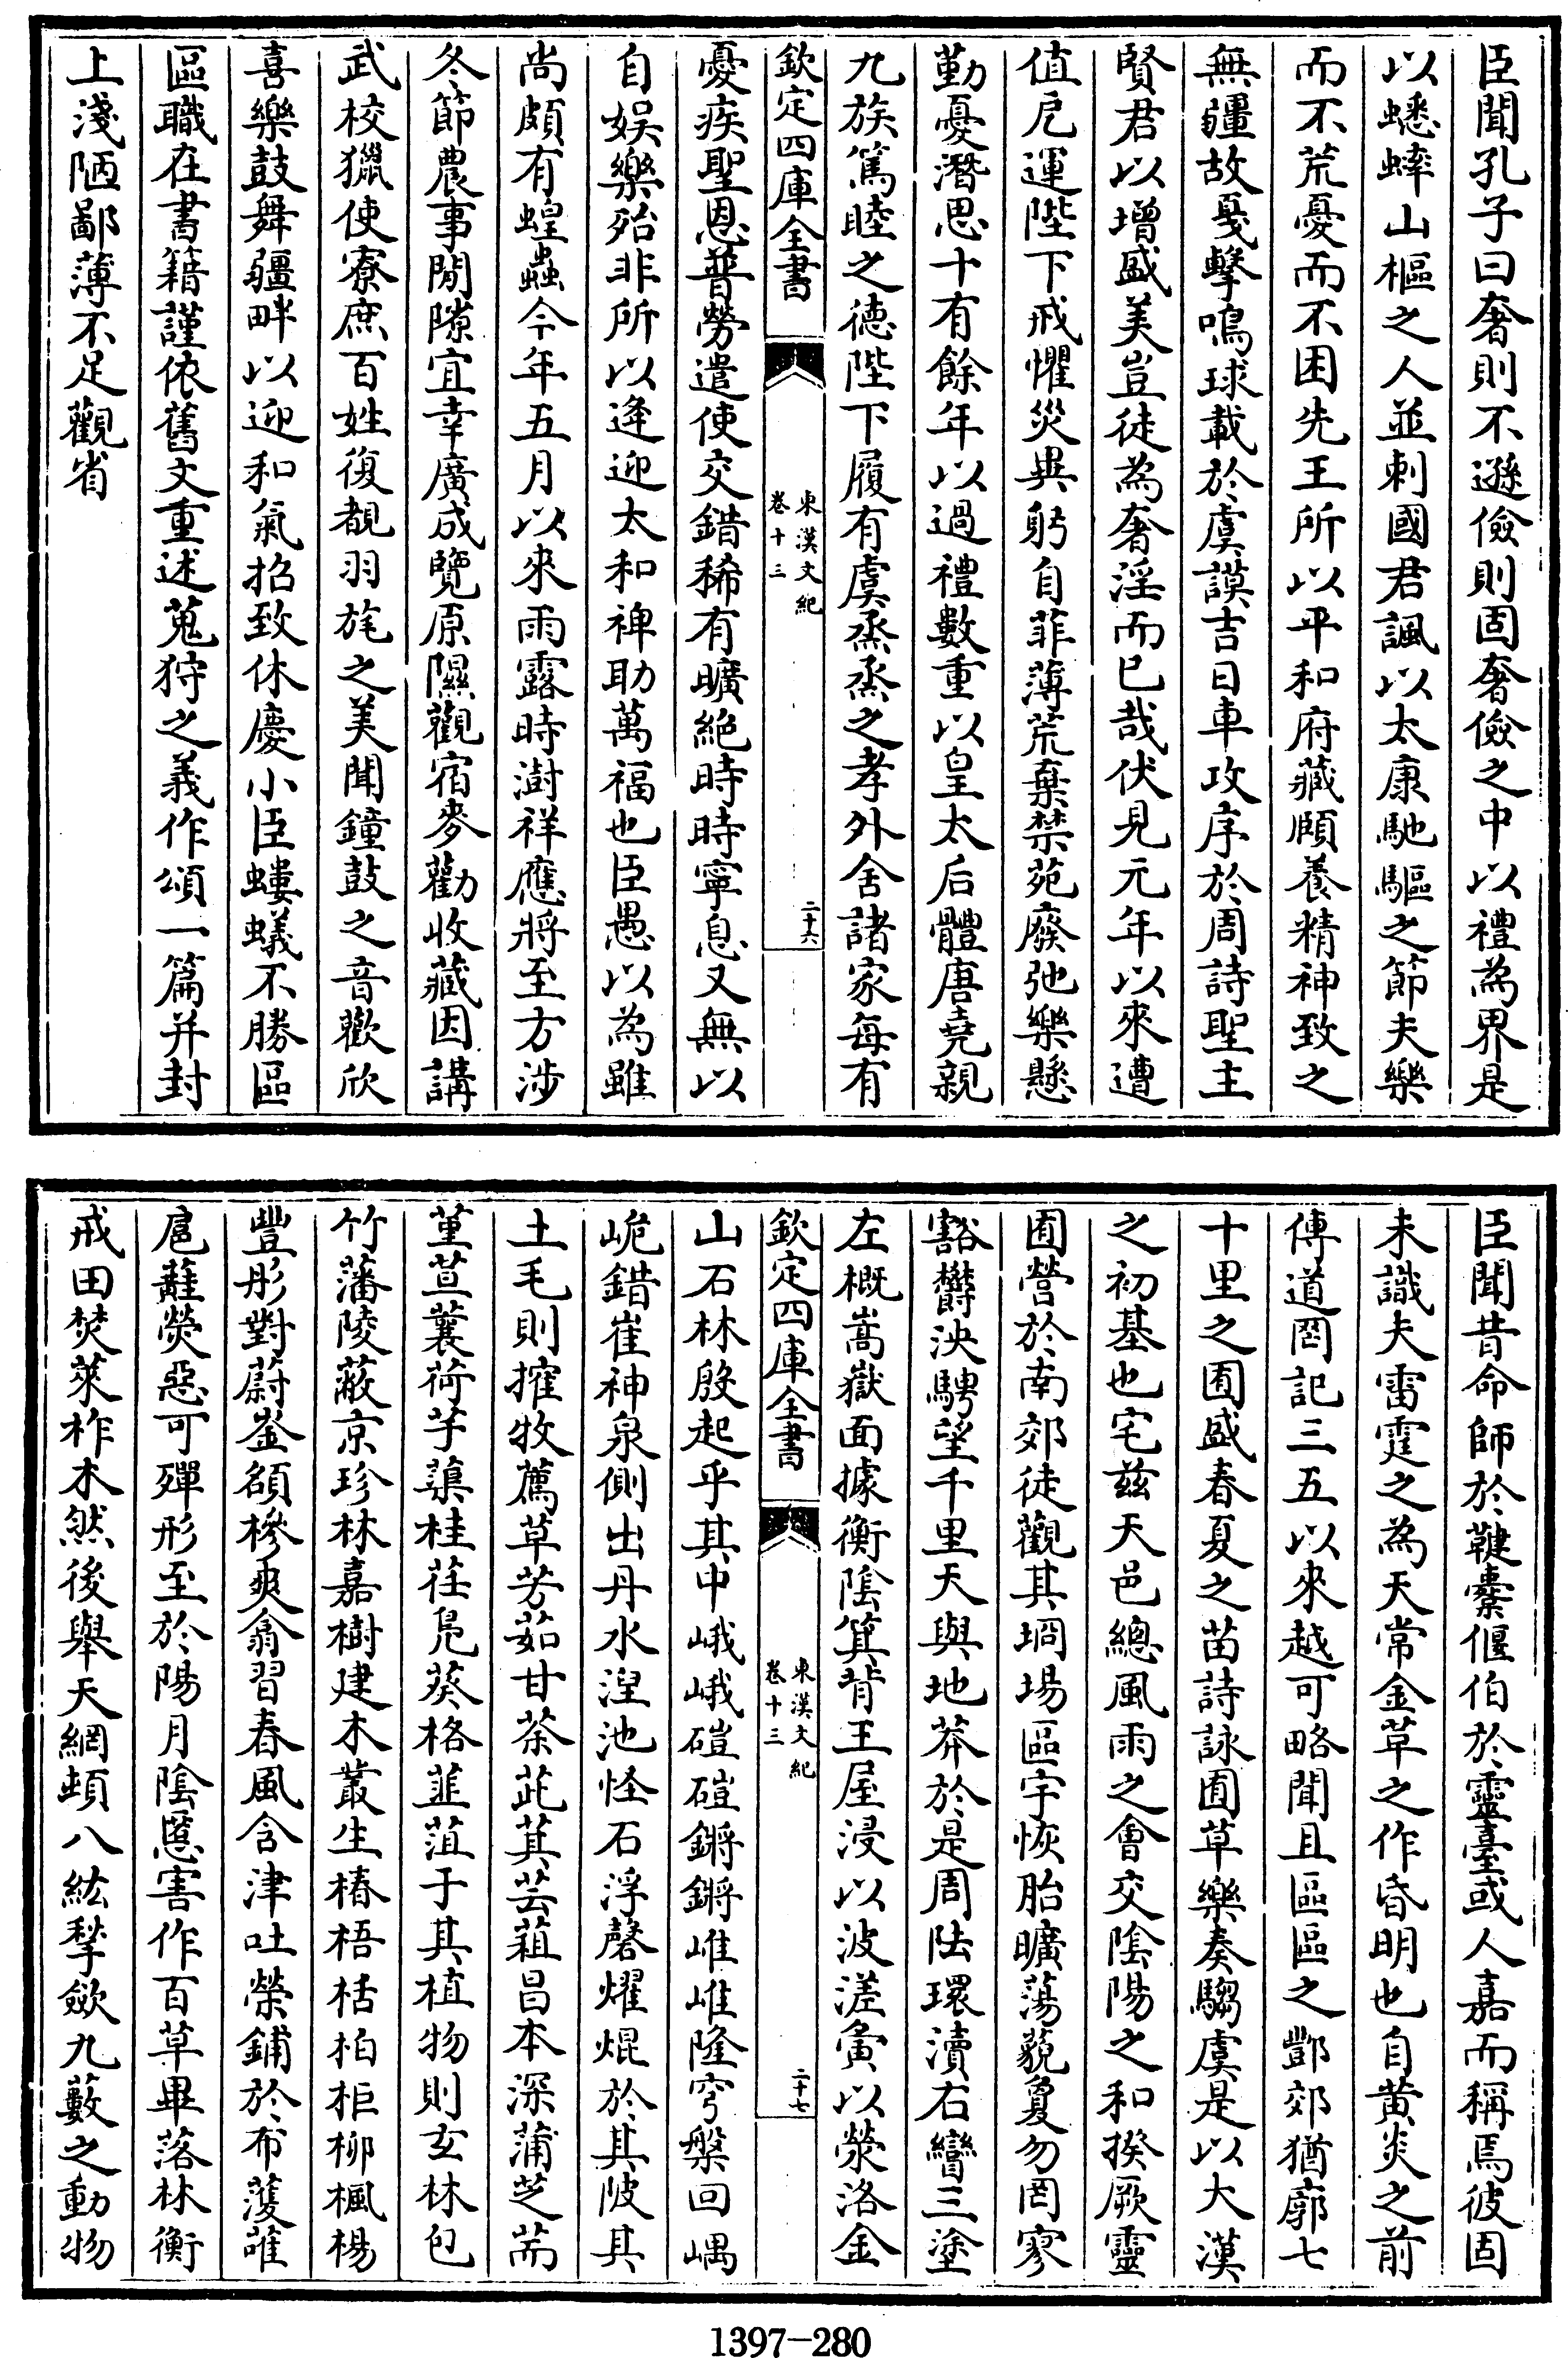 臣聞孔子曰奢則不遜儉則固奢儉之中以禮為界是
以蟋蟀山樞之人並刺國君諷以太康馳驅之節夫樂
而不荒憂而不困先王所以平和府藏頤養精神致之
無疆故戛擊鳴球載於虞謨吉日車攻序於周詩聖主
賢君以增盛美豈徒為奢淫而已哉伏見元年以來遭
值戹運陛下戒懼災異躬自菲薄荒棄禁苑廢弛樂懸
勤憂潛思十有餘年以過禮數重以皇太后體唐堯親
九族篤睦之德陛下履有虞烝烝之孝外舍諸家每有
欽定四庫全書
東漢文紀
卷十三
二十六
憂疾聖恩普勞遣使交錯稀有曠絶時時寧息又無以
自娛樂殆非所以逢迎太和裨助萬福也臣愚以為雖
尚頗有蝗蟲今年五月以來雨露時澍祥應將至方涉
冬節農事閒隙宜幸廣成覽原隰觀宿麥勸收藏因講
武校獵使寮庶百姓復覩羽旄之美聞鐘鼓之音歡欣
喜樂鼓舞疆畔以迎和氣招致休慶小臣螻蟻不勝區
區職在書籍謹依舊文重述蒐狩之義作頌一篇并封
上淺陋鄙薄不足觀省
臣聞昔命師於鞬櫜偃伯於靈臺或人嘉而稱焉彼固
未識夫雷霆之為天常金草之作昏明也自黃炎之前
傳道罔記三五以來越可略聞且區區之酆郊猶廓七
十里之囿盛春夏之苗詩詠囿草樂奏騶虞是以大漢
之初基也宅兹天邑總風雨之會交陰陽之和揆厥靈
囿營於南郊徒觀其坰場區宇恢胎曠蕩藐夐勿罔寥
豁鬱泱騁望千里天與地莽於是周阹環瀆右矕三塗
左概嵩嶽面據衡陰箕背王屋浸以波溠夤以滎洛金
欽定四庫全書
東漢文紀
卷十三
二十七
山石林殷起乎其中峨峨磑磑鏘鏘崔崔隆穹槃回嵎
峗錯崔神泉側出丹水涅池怪石浮磬燿焜於其陂其
土毛則搉牧薦草芳茹甘荼茈萁芸蒩昌本深蒲芝荋
菫荁蘘荷芋蕖桂荏鳧葵格韮菹于其植物則玄林包
竹藩陵蔽京珍林嘉樹建木叢生椿梧栝柏柜栁楓楊
豐彤對蔚崟頟槮爽翕習春風含津吐榮鋪於布濩蓶
扈蘳熒惡可殫形至於陽月陰慝害作百草畢落林衡
戒田焚萊柞木然後舉天網頓八紘揫斂九藪之動物
1397-280